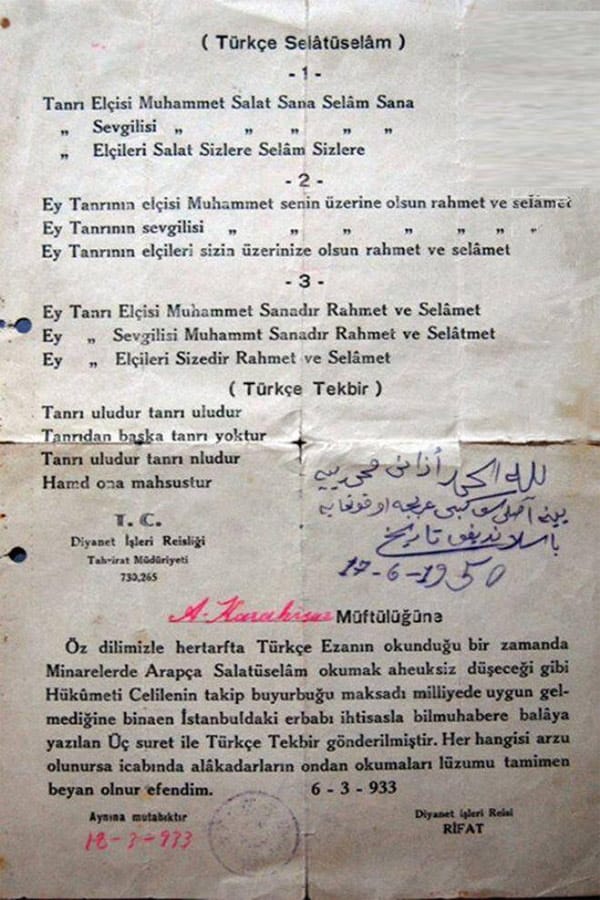 ( Türkçe Selâtüselâm )
- 1 -
Tanrı Elçisi Muhammet Salat Sana Selâm Sana
„ Sevgilisi „ „ „ „ „
„ Elçileri Salat Sizlere Selâm Sizlere
- 2 -
Ey Tanrının elçisi Muhammet senin üzerine olsun rahmet ve selâmet
Ey Tanrının sevgilisi „ „ „ „ „ „ „
Ey Tanrının elçileri sizin üzerinize olsun rahmet ve selâmet
- 3 -
Ey Tanrı Elçisi Muhammet Sanadır Rahmet ve Selâmet
Ey „ Sevgilisi Muhammt Sanadır Rahmet ve Selâtmet
Ey „ Elçileri Sizedir Rahmet ve Selâmet
( Türkçe Tekbir )
Tanrı uludur tanrı uludur
Tanrıdan başka tanrı yoktur
Tanrı uludur tanrı nludur
Hamd ona mahsustur
لله الحمد أذانى
ينه اصلى كبى عربجه اوقونمايه
باشلانديغى تاريخ
17-6-1950
T. C.
Diyanet İşleri Reisliği
Tahrirat Müdüriyeti
730,265
A-Karahisar Müftülüğüne
Öz dilimizle hertarfta Türkçe Ezanın okunduğu bir zamanda
Minarelerde Arapça Salatüselâm okumak aheuksiz düşeceği gibi
Hükûmeti Celilenin takip buyurbuğu maksadı milliyede uygun gel-
mediğine binaen İstanbuldaki erbabı ihtisasla bilmuhabere balâya
yazılan Üç suret ile Türkçe Tekbir gönderilmiştir. Her hangisi arzu
olunursa icabında alâkadarların ondan okumaları lüzumu tamimen
beyan olnur efendim. 6 - 3 - 933
Aynına mutabıktır
18-3-933
Diyanet işleri Reisi
RİFAT